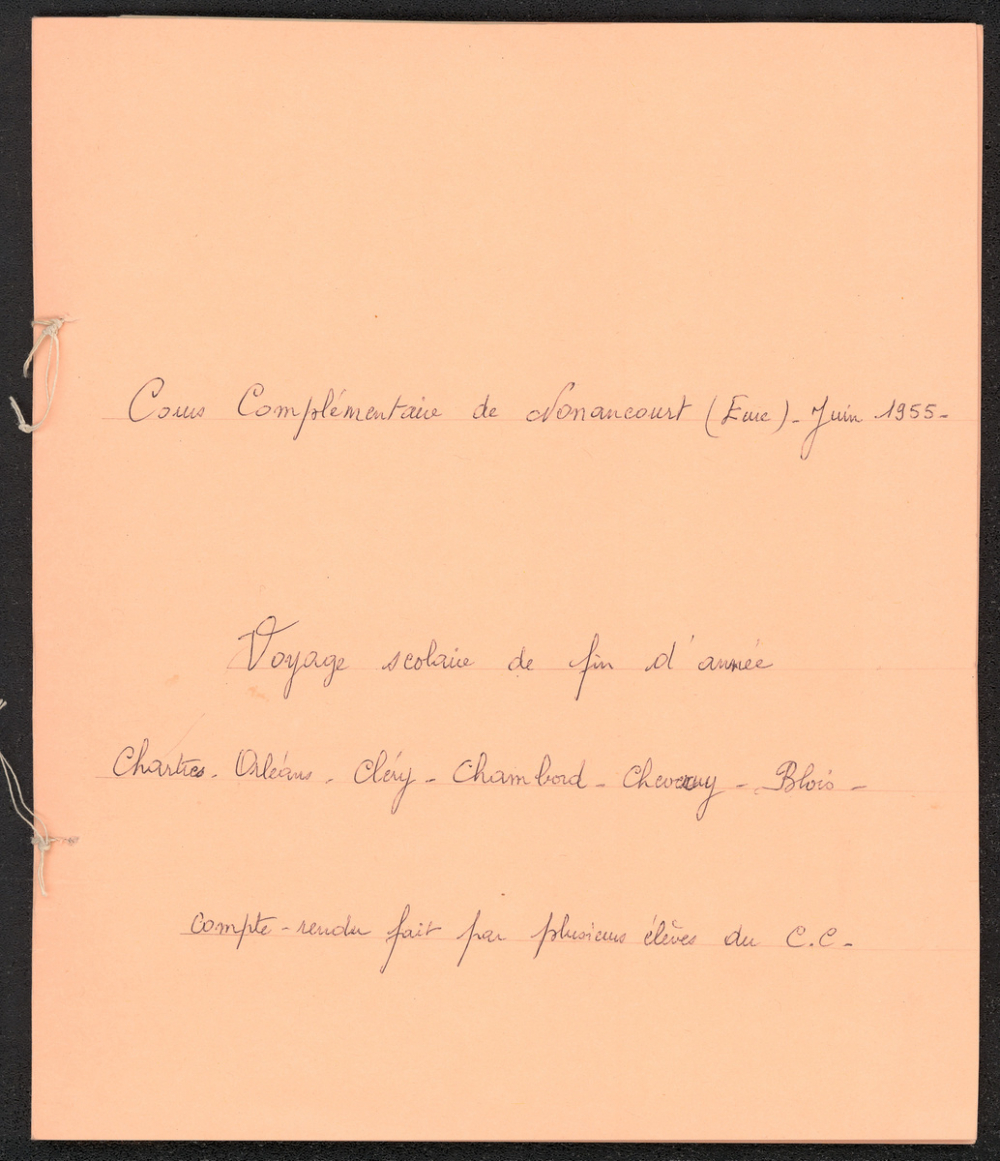 Cours Complémentaire de Nonancourt (Eure) - Juin 1955 -
Voyage scolaire de fin d'année
Chartres - Orléans - Cléry - Chambord - Cheverny - Blois -
compte-rendu fait par plusieurs élèves du C.C -